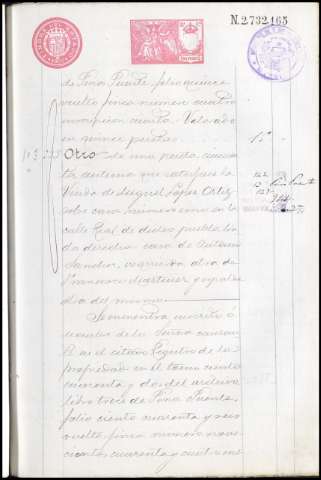 N. 2.732.165
de Pina Fuente, folio quince
vuelto finca número cuatro
inscripción cuarta. Valorado
en quince pesetas 15"
Otro de una peseta cincuenta
céntimos que satisface la
Viuda de Miguel López Ortiz
sobre casa número once en la
calle Real de dicho pueblo lin
da derecha casa de Antonio
Sánchez, izquierda otra de
Francisco Martínez y espalda
otra del mismo
Se encuentra inscrito á
nombre de la Señora causan
te en el citado Registro de la
propiedad en el tomo ciento
cuarenta y dos del archivo
libro tres de Pina Fuente,
folio ciento cuarenta y seis
vuelto, finca número nove
cientos cuarenta y cuatro ins